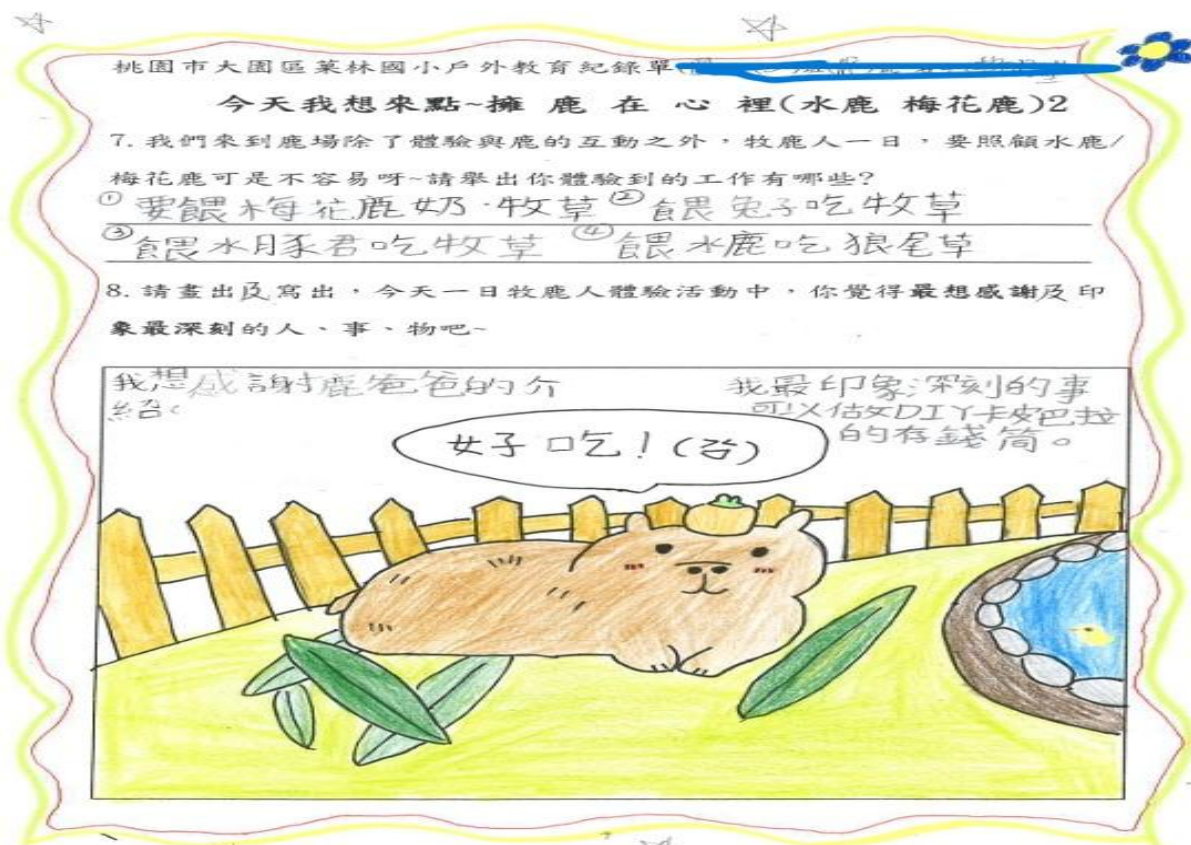 桃園市大園區菓林國小戶外教育紀錄單
今天我想來點~擁 鹿 在 心 裡(水鹿 梅花鹿)2
7. 我們來到鹿場除了體驗與鹿的互動之外，牧鹿人一日，要照顧水鹿/
梅花鹿可是不容易呀~請舉出你體驗到的工作有哪些?
① 要餵梅花鹿奶、牧草 ② 餵兔子吃牧草
③ 餵水豚君吃牧草 ④ 餵水鹿吃狼尾草
8. 請畫出及寫出，今天一日牧鹿人體驗活動中，你覺得最想感謝及印
象最深刻的人、事、物吧~
我想感謝鹿爸爸的介
紹。
我最印象深刻的事
可以做DIY卡皮巴拉
的存錢筒。
好吃!